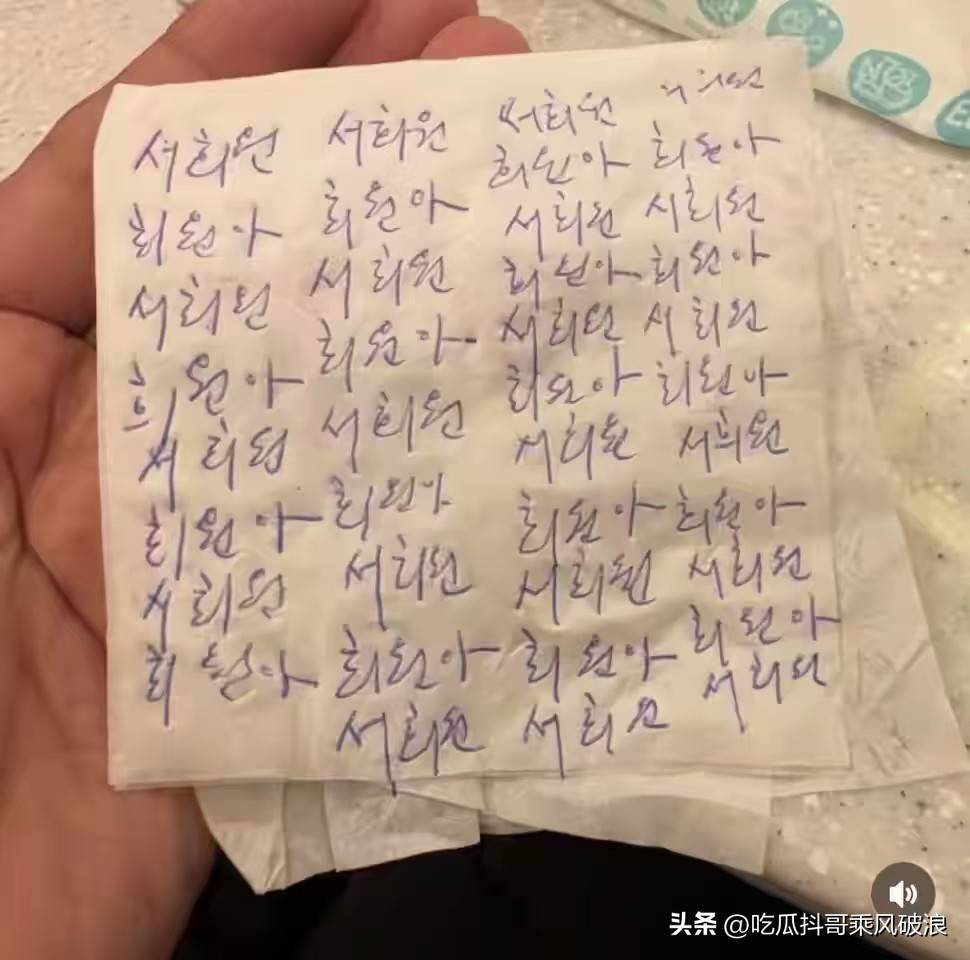 서희원
희원아
서희원
희원아
서희원
희원아
서희원
희원아
서희원
희원아
서희원
희원아
서희원
희원아
서희원
희원아
서희원
서희원
희원아
서희원
희원아
서희원
희원아
서희원
희원아
서희원
희원아
서희원
서희원
희원아
서희원
희원아
서희원
희원아
서희원
희원아
서희원
희원아
서희원
头条 @吃瓜抖哥乘风破浪